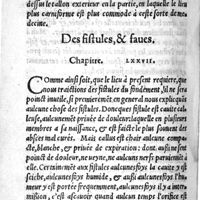 dessus le callon exterieur en la partie, en laquelle le of
la cicarneuse est plus commode à ceste sorte de me-
decine.
Des fistules, & faues.
Chapitre. LXXVII.
Comme ainsi soit, que le lieu à present requiere, que
nous traictions des fistules du fondement, il ne sera
point inutile, si premierement en general nous expliquõs
aulcune chose des fistules. Doncques fistule est caute cal-
leuse, aulcunemēt priuée de douleur: laquelle en plusieurs
membres a sa naissance, & est faicte le plus souuent
des abscés mal curés. Mais callus est chair aulcune compa-
cte, blanche, & priuée de expiration: doù aussi ne sent
point de douleur, ne veyne, ne aulcuns nerfs paruienēt à el-
le. Certainemēt aux fistules aulcunesfoys la cauté y est
seiche, aulcunesfoys humide, & aussi aulcunesfoys l'hu-
meur y est portée frequemment, aulcunesfoys il y a inter-
mission, c'est asçauoir, que en aulcun temps l'orifice est